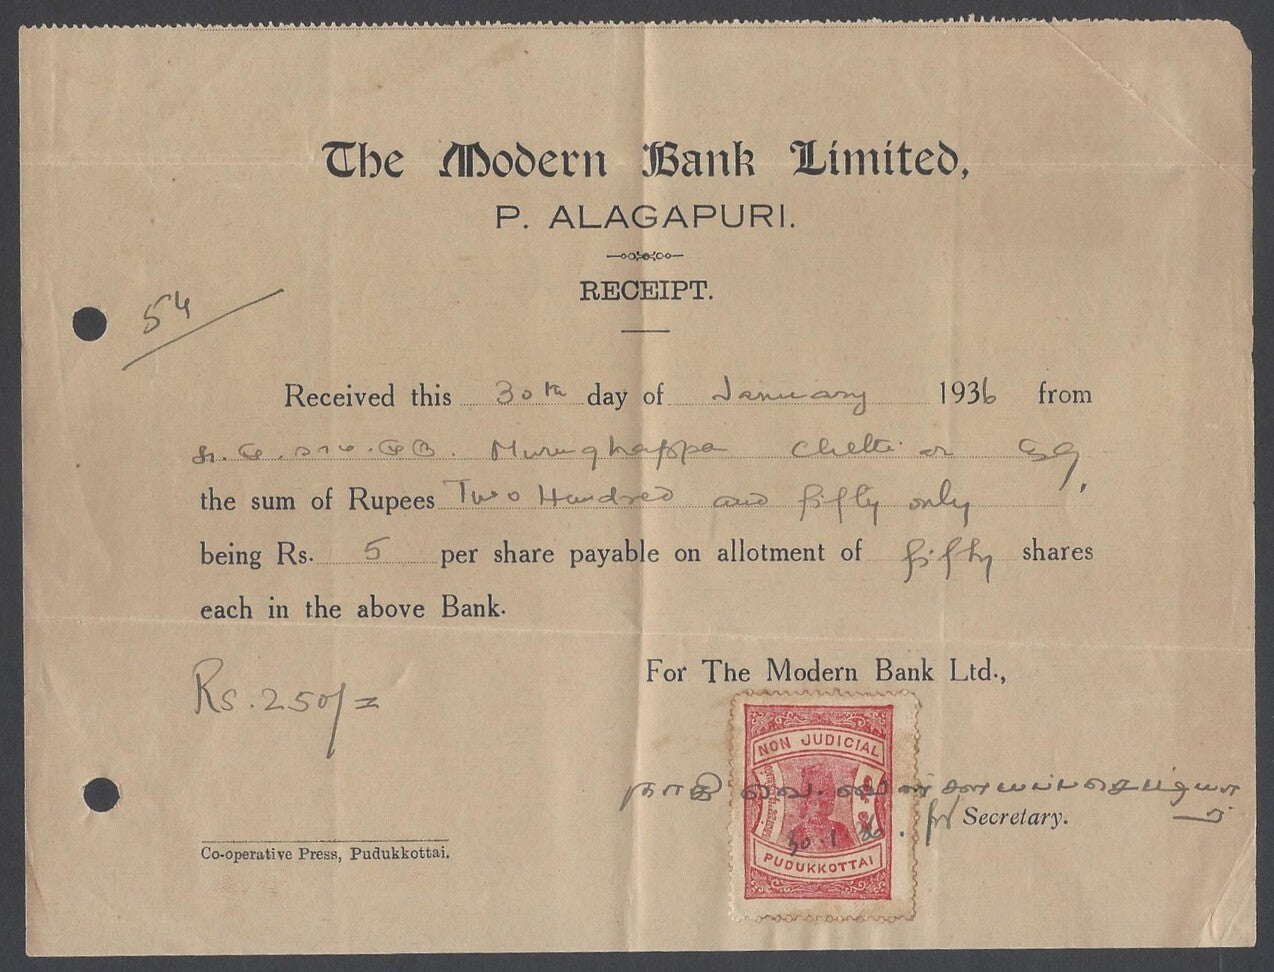 The Modern Bank Limited,
P. ALAGAPURI.
RECEIPT.
54
Received this 30th day of January 1936 from
Murughappa Chettiar
the sum of Rupees Two Hundred and fifty only
being Rs. 5 per share payable on allotment of fifty shares
each in the above Bank.
For The Modern Bank Ltd.,
Rs. 250/=
NON JUDICIAL
30.1.36. for Secretary.
PUDUKKOTTAI
Co-operative Press, Pudukkottai.